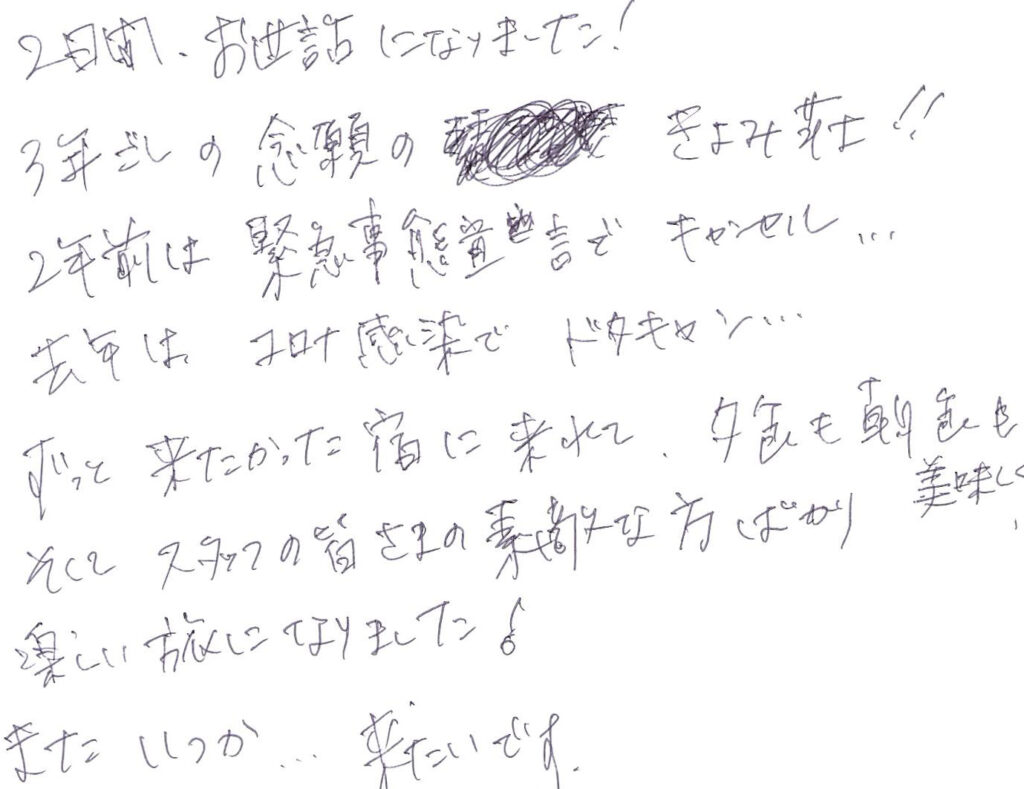 2日間、お世話になりました!
3年ごしの念願の きよみ荘!!
2年前は緊急事態宣言でキャンセル…
去年は、コロナ感染でドタキャン…
ずっと来たかった宿に来れて、夕食も朝食も
美味しく、
そしてスタッフの皆さまの素敵な方ばかり
楽しい旅になりました!
またいつか…来たいです。